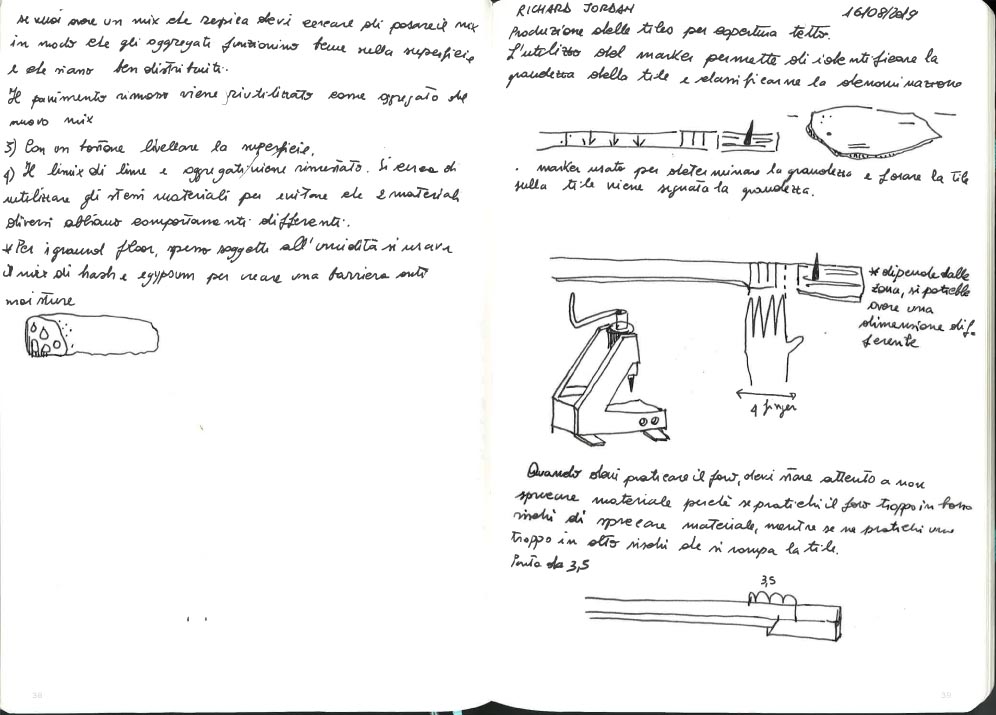 se vuoi avere un mix che respira devi cercare di posare il mix
in modo che gli aggregati funzionino bene nella superficie
e che siano ben distribuiti.
Il pavimento rimosso viene riutilizzato come aggregato del
nuovo mix
3) Con un livellare la superficie.
4) Il di lime e aggregati viene rimestato. Si cerca di
utilizzare gli stessi materiali per evitare che 2 materiali
diversi abbiano comportamenti differenti.
* Per i ground floor, spesso soggetti all'umidità si usava
il mix di hash e egypsum per creare una barriera anti
moisture
38
RICHARD JORDAN 16/08/2019
Produzione delle tiles per copertura tetto.
L'utilizzo del marker permette di identificare la
grandezza della tile e classificarne la denominazione
. marker usato per determinare la grandezza e forare la tile
sulla tile viene segnata la grandezza.
* dipende dalla
zona, si potrebbe
avere una
dimensione dif-
ferente
4 finger
Quando devi praticare il foro, devi stare attento a non
sprecare materiale perchè se pratichi il foro troppo in basso
rischi di sprecare materiale, mentre se ne pratichi uno
troppo in alto rischi che si rompa la tile.
Punta da 3,5
3,5
39